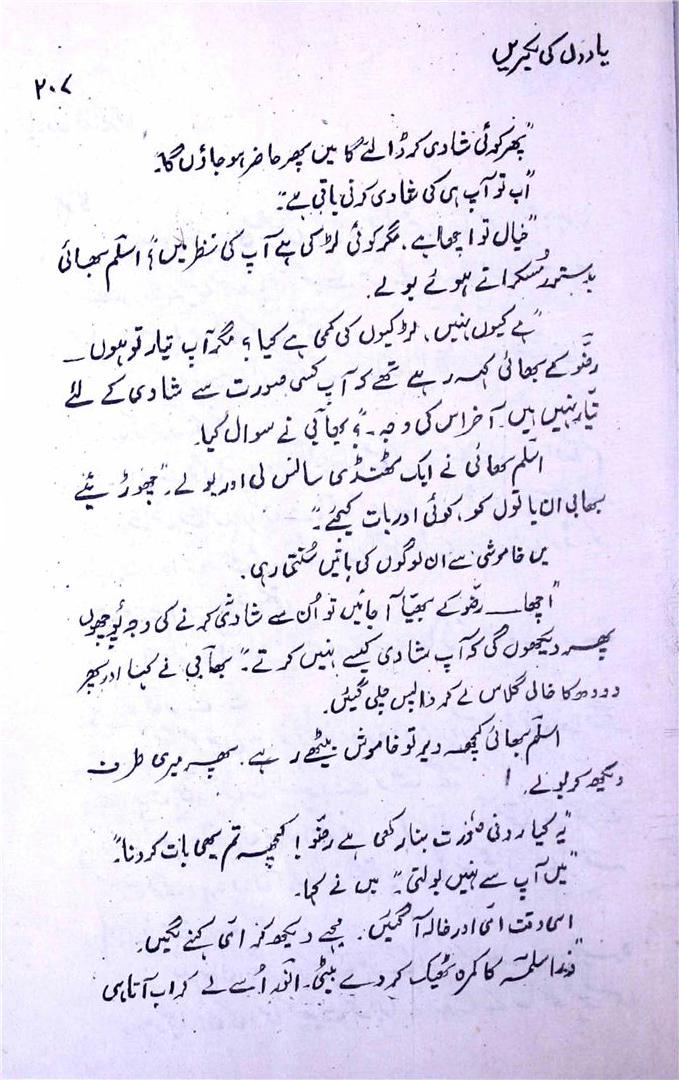 یادوں کی لکیریں
۲۰۷
"پھر کوئی شادی کر ڈالئے گا میں پھر حاضر ہو جاؤں گا۔
"اب تو آپ ہی کی شادی کرنی باقی ہے۔"
"خیال تو اچھا ہے، مگر کوئی لڑکی ہے آپ کی نظر میں؟" اسلم بھائی
بدستور مُسکراتے ہوئے بولے۔
"ہے کیوں نہیں، لڑکیوں کی کمی ہے کیا؟ مگر آپ تیار تو ہوں ــ
رضّو کے بھائی کہہ رہے تھے کہ آپ کسی صورت سے شادی کے لئے
تیّار نہیں ہیں۔ آخر اس کی وجہ ۔؟" بھابی نے سوال کیا۔
اسلم بھائی نے ایک ٹھنڈی سانس لی اور بولے۔ "چھوڑیئے
بھابی ان باتوں کو، کوئی اور بات کیجئے۔"
میں خاموشی سے ان لوگوں کی باتیں سُنتی رہی۔
"اچھا ــ رضّو کے بھیّا آ جائیں تو اُن سے شادی کرنے کی وجہ پوچھوں
پھر دیکھوں گی کہ آپ شادی کیسے نہیں کرتے۔" بھابی نے کہا اور پھر
دودھ کا خالی گلاس لے کر واپس چلی گئیں۔
اسلم بھائی کچھ دیر تو خاموش بیٹھے رہے۔ پھر میری طرف
دیکھ کر بولے۔ !
"یہ کیا رونی صورت بنا رکھی ہے رضّو! کچھ تم بھی بات کرو نا۔"
"میں آپ سے نہیں بولتی۔" میں نے کہا۔
اسی وقت امّی اور خالہ آ گئیں۔ مجھے دیکھ کر امّی کہنے لگیں۔
"ذرا سلمہ کا کمرہ ٹھیک کر دے بیٹی۔ انور اُسے لے کر اب آتا ہی